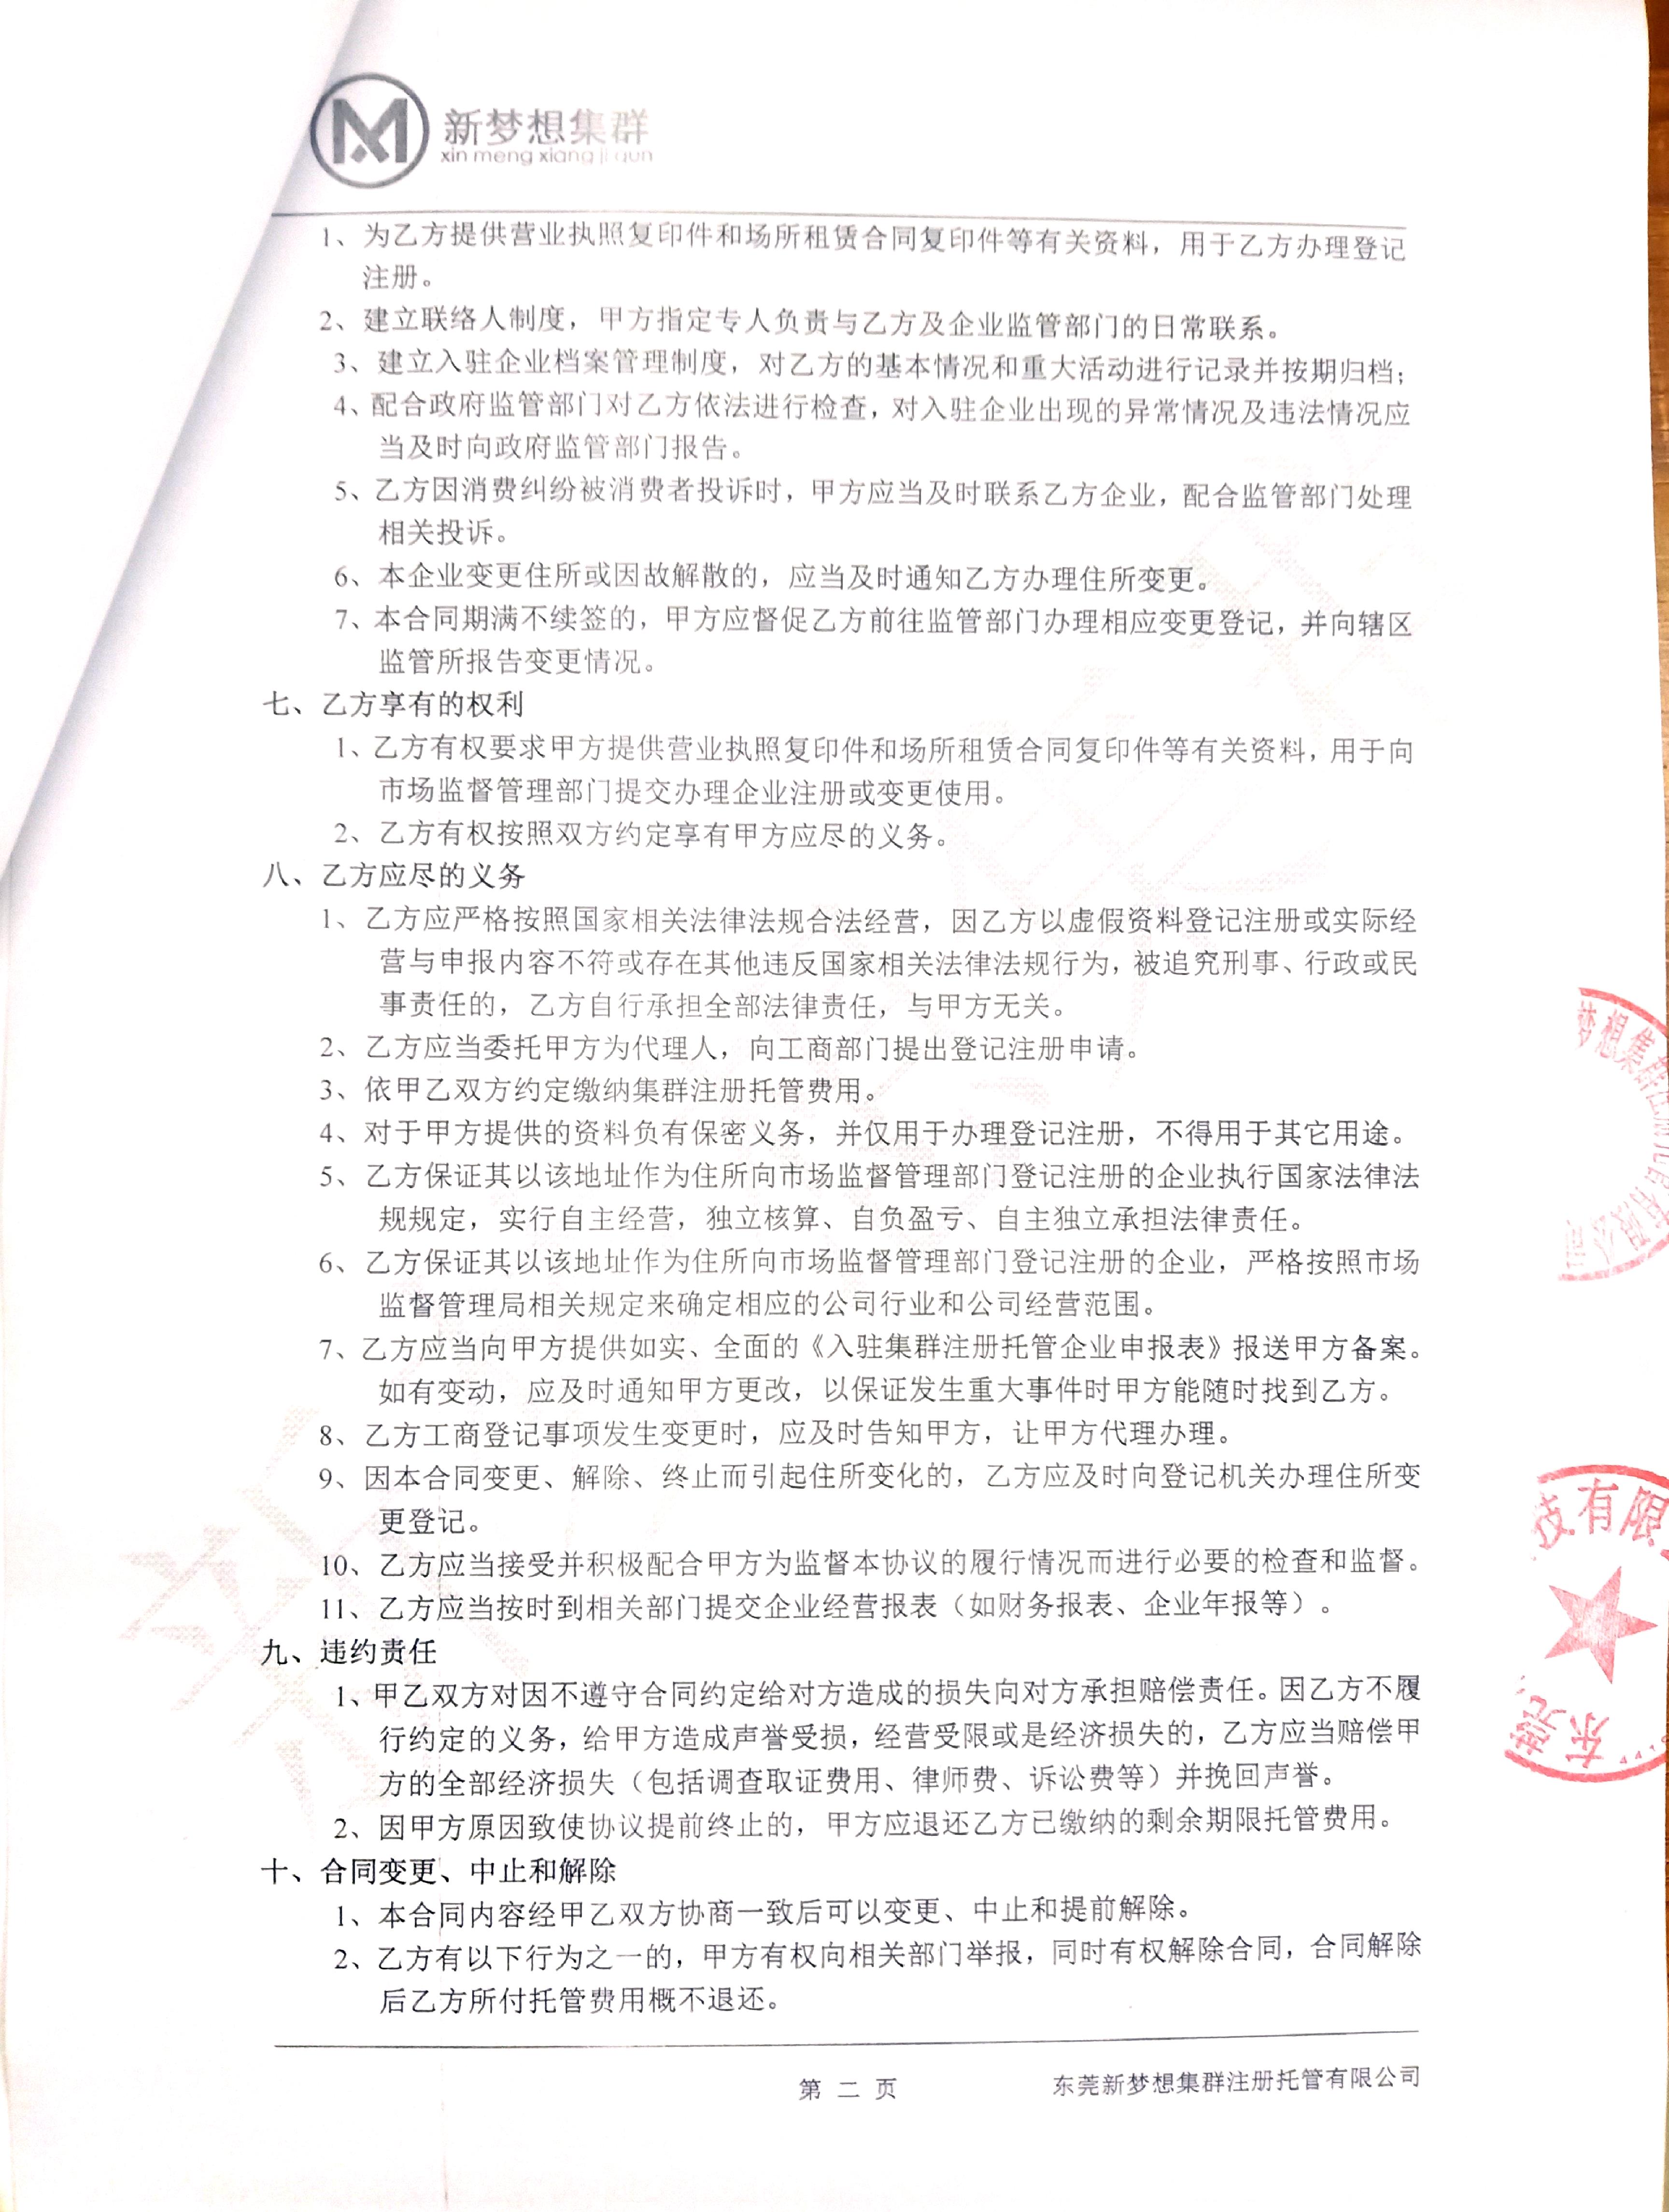 新梦想集群
xin meng xiang ji qun
1、为乙方提供营业执照复印件和场所租赁合同复印件等有关资料，用于乙方办理登记
注册。
2、建立联络人制度，甲方指定专人负责与乙方及企业监管部门的日常联系。
3、建立入驻企业档案管理制度，对乙方的基本情况和重大活动进行记录并按期归档；
4、配合政府监管部门对乙方依法进行检查，对入驻企业出现的异常情况及违法情况应
当及时向政府监管部门报告。
5、乙方因消费纠纷被消费者投诉时，甲方应当及时联系乙方企业，配合监管部门处理
相关投诉。
6、本企业变更住所或因故解散的，应当及时通知乙方办理住所变更。
7、本合同期满不续签的，甲方应督促乙方前往监管部门办理相应变更登记，并向辖区
监管所报告变更情况。
七、乙方享有的权利
1、乙方有权要求甲方提供营业执照复印件和场所租赁合同复印件等有关资料，用于向
市场监督管理部门提交办理企业注册或变更使用。
2、乙方有权按照双方约定享有甲方应尽的义务。
八、乙方应尽的义务
1、乙方应严格按照国家相关法律法规合法经营，因乙方以虚假资料登记注册或实际经
营与申报内容不符或存在其他违反国家相关法律法规行为，被追究刑事、行政或民
事责任的，乙方自行承担全部法律责任，与甲方无关。
2、乙方应当委托甲方为代理人，向工商部门提出登记注册申请。
3、依甲乙双方约定缴纳集群注册托管费用。
4、对于甲方提供的资料负有保密义务，并仅用于办理登记注册，不得用于其它用途。
5、乙方保证其以该地址作为住所向市场监督管理部门登记注册的企业执行国家法律法
规规定，实行自主经营，独立核算、自负盈亏、自主独立承担法律责任。
6、乙方保证其以该地址作为住所向市场监督管理部门登记注册的企业，严格按照市场
监督管理局相关规定来确定相应的公司行业和公司经营范围。
7、乙方应当向甲方提供如实、全面的《入驻集群注册托管企业申报表》报送甲方备案。
如有变动，应及时通知甲方更改，以保证发生重大事件时甲方能随时找到乙方。
8、乙方工商登记事项发生变更时，应及时告知甲方，让甲方代理办理。
9、因本合同变更、解除、终止而引起住所变化的，乙方应及时向登记机关办理住所变
更登记。
10、乙方应当接受并积极配合甲方为监督本协议的履行情况而进行必要的检查和监督。
11、乙方应当按时到相关部门提交企业经营报表（如财务报表、企业年报等）。
九、违约责任
1、甲乙双方对因不遵守合同约定给对方造成的损失向对方承担赔偿责任。因乙方不履
行约定的义务，给甲方造成声誉受损，经营受限或是经济损失的，乙方应当赔偿甲
方的全部经济损失（包括调查取证费用、律师费、诉讼费等）并挽回声誉。
2、因甲方原因致使协议提前终止的，甲方应退还乙方已缴纳的剩余期限托管费用。
十、合同变更、中止和解除
1、本合同内容经甲乙双方协商一致后可以变更、中止和提前解除。
2、乙方有以下行为之一的，甲方有权向相关部门举报，同时有权解除合同，合同解除
后乙方所付托管费用概不退还。
第 二 页
东莞新梦想集群注册托管有限公司
梦想集群
有限公司
技有限
东莞